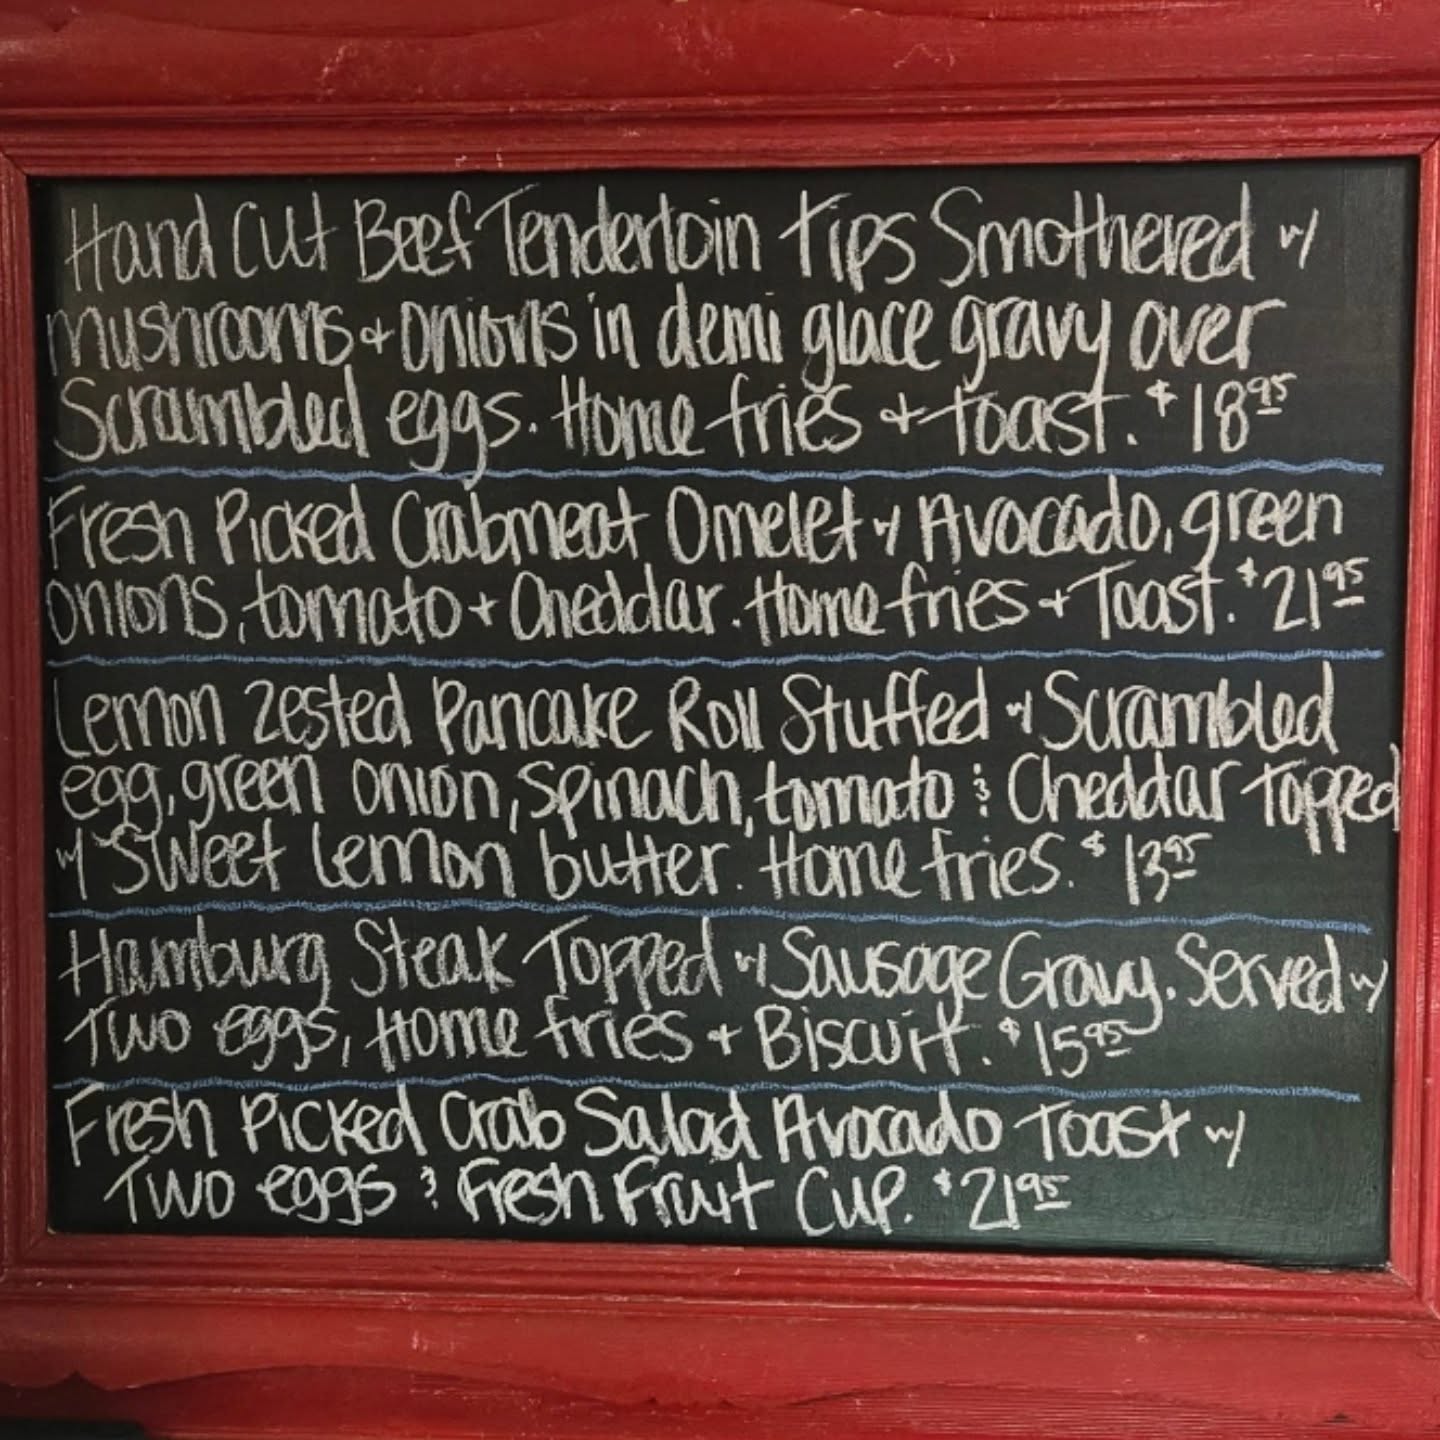 Hand Cut Beef Tenderloin Tips Smothered w/
mushrooms + onions in demi glace gravy over
Scrambled eggs. Home fries + toast. $18.95
Fresh Picked Crabmeat Omelet w/ Avocado, green
onions, tomato + Cheddar. Home fries + Toast. $21.95
Lemon Zested Pancake Roll Stuffed w/ Scrambled
egg, green onion, spinach, tomato & Cheddar Topped
w/ Sweet lemon butter. Home fries. $13.95
Hamburg Steak Topped w/ Sausage Gravy. Served w/
Two eggs, Home fries + Biscuit. $15.95
Fresh Picked Crab Salad Avocado Toast w/
Two eggs & Fresh Fruit Cup. $21.95